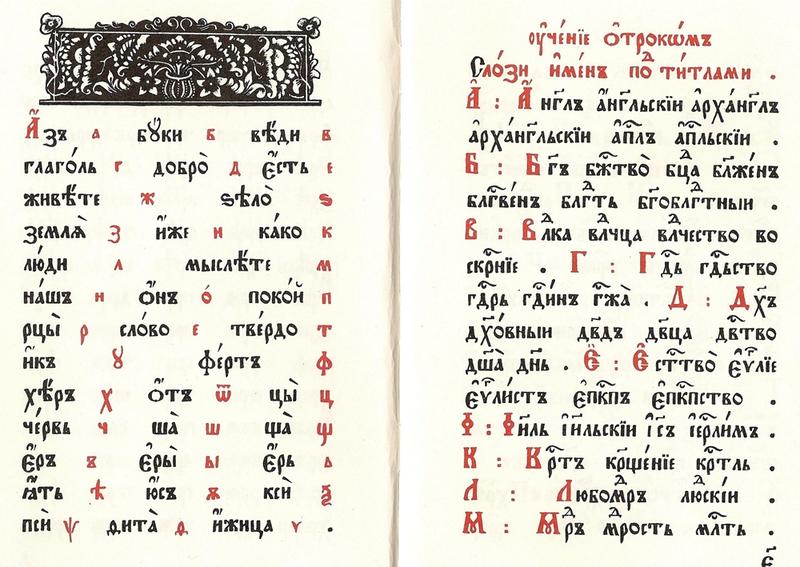 А҆́зъ а бꙋ́ки б вѣ́ди в
глаго́ль г добро̀ д є҆́сть е
живѣ́те ж ѕѣло̀ ѕ
землѧ̀ З и҆́же и ка́ко к
лю́ди л мыслѣ́те м
на́шъ н ѻ҆́нъ о поко́й п
рцы̀ р сло́во с тве́рдо т
и҆́къ ꙋ фе́ртъ ф
хѣ́ръ х ѻ҆́тъ ѿ цы̀ ц
че́рвь ч ша̀ ш ща̀ щ
є҆́ръ ъ є҆ры̀ ы є҆́рь ь
ꙗ҆́ть ѣ ю҆́съ ѫ ксѝ ѯ
псѝ ѱ ѳита̀ ѳ и҆́жица ѵ .
ᲂу҆че́нїе ѻ҆трокѡ́мъ
Сло́зи и҆ме́нъ поⷣ ти́тлами .
А҆ : А҆́нг҃лъ а҆́нг҃льскїи а҆рха́нг҃лъ
а҆рха́нг҃льскїи а҆пⷭ҇лъ а҆пⷭ҇льскїи .
Б : Бг҃ъ бж҃тво̀ бцⷣа бл҃же́нъ
блг҃ве́нъ блⷣгть бг҃облⷣгтныи .
В : Влⷣка влⷣчца влⷣчество во
скр҃нїе . Г : Гдⷭ҇ь гдⷭ҇ьство
гдⷭ҇рь гдⷭ҇и́нъ гж҃а̀ . Д : Дх҃ъ
дх҃о́вныи дв҃дъ дв҃ца дв҃тво
дш҃а̀ дн҃ь . Є҆ : Є҆стⷭ҇тво̀ є҆ѵⷢ҇лїе
є҆ѵⷢ҇ли́стъ є҆пⷭ҇кпъ є҆пⷭ҇кпство .
І҆ : І҆и҃ль і҆и҃льскїи і҆с҃ъ і҆ерⷭ҇ли́мъ .
К : Крⷭ҇тъ крⷭ҇ще́нїе крⷭ҇тль .
Л : Любомⷣръ люⷣскїи .
М : Мⷣръ мⷣрость млⷭ҇ть .
є҃